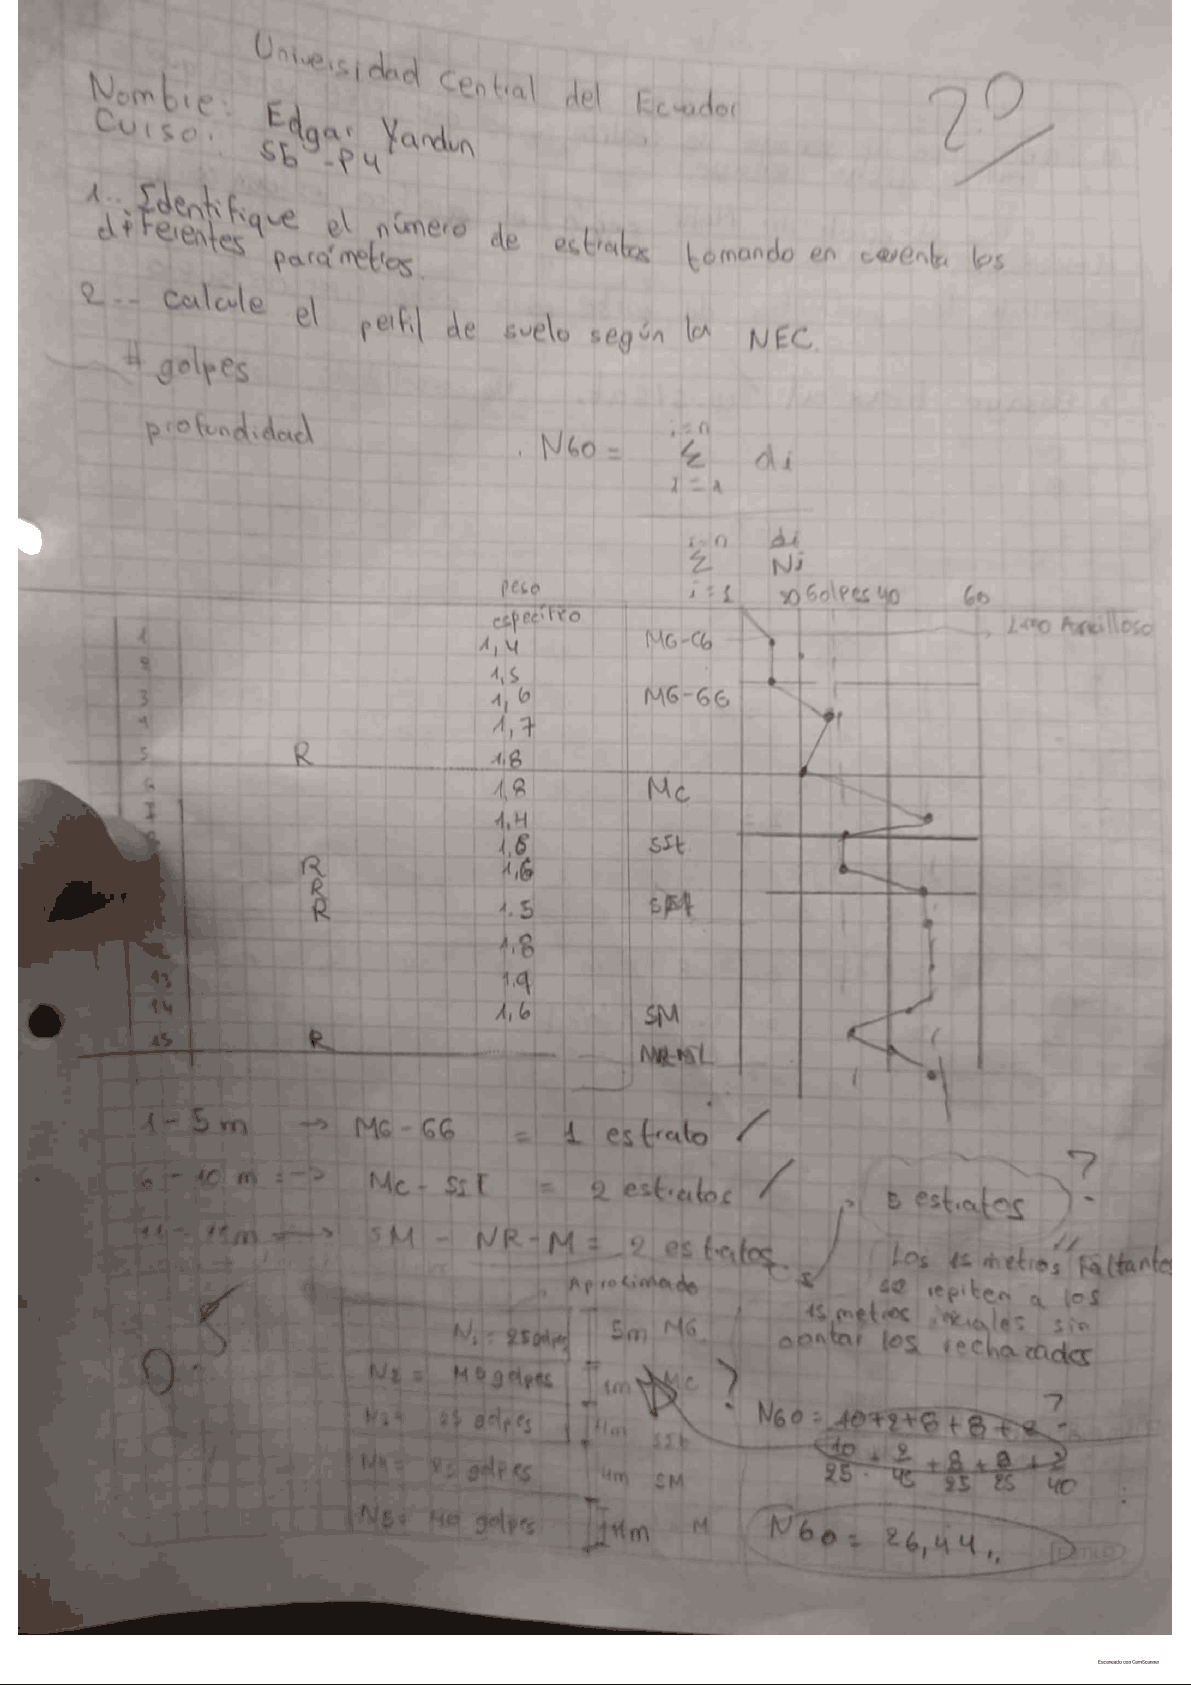 Universidad Central del Ecuador
20
Nombre: Edgar Yandun
Curso: S6 - P4
1.. Identifique el número de estratos tomando en cuenta los
diferentes parámetros.
2.. calcule el perfil de suelo según la NEC.
# golpes
profundidad
N60 = i=n Σ i=1 di
i=n Σ i=1 di Ni
peso especifico
Golpes 40 60
1 1,4 MG-CG Limo Arcilloso
2 1,5
3 1,6 MG-GG
4 1,7
5 R 1,8
1,8 MC
1,4
1,6 SSt
R 1,6
R
R 1.5
1.8
13 1.9
14 1,6 SM
15 R
1 - 5 m → MG-GG = 1 estrato
6 - 10 m = → MC - SST = 2 estratos
?
5 estratos
SM - NR - M = 2 estratos
Los 15 metros Faltantes
se repiten a los
15 metros iniciales sin
contar los rechazados
Aproximado
N1 = 25 golpes 5m MG
N2 = 40 golpes 1m MC ?
golpes SSt
golpes 4m SM
N5 = 40 golpes M
N60 = 10+2+8+8+2 ?
10/25 + 2/45 + 8/25 + 8/25 + 2/40
N60 = 26,44,,
Escaneado con CamScanner